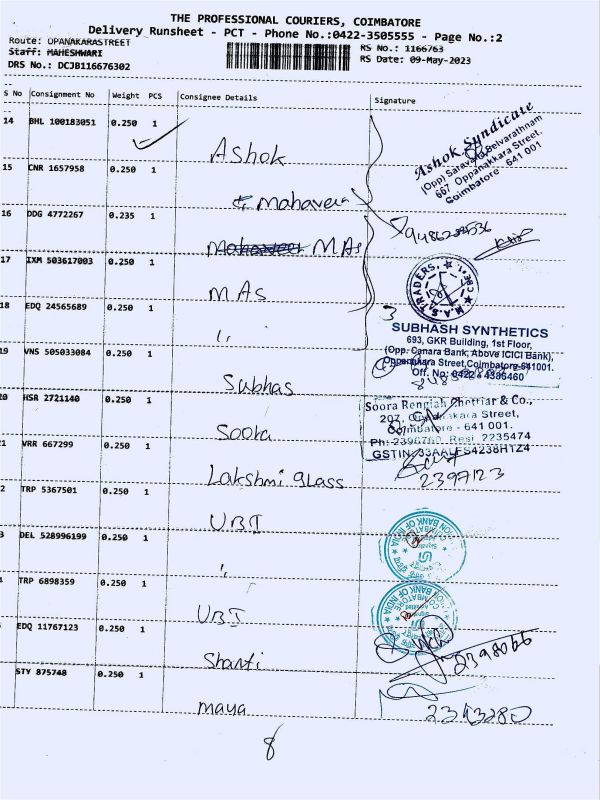 THE PROFESSIONAL COURIERS, COIMBATORE
Delivery Runsheet - PCT - Phone No.:0422-3505555 - Page No.:2
Route: OPANAKARASTREET
RS No.: 1166763
Staff: MAHESHWARI
RS Date: 09-May-2023
DRS No.: DCJB116676302
S No Consignment No Weight PCS Consignee Details Signature
14 BHL 100183051 0.250 1
Ashok
Ashok Syndicate
(Opp) Saravana Selvarathnam
667 Oppanakkara Street,
Coimbatore - 641 001
15 CNR 1657958 0.250 1
Mahaveer
16 DDG 4772267 0.235 1
MAs
17 IXM 503617003 0.250 1
MAs
M.A.S. TRADERS.
18 EDQ 24565689 0.250 1
3
SUBHASH SYNTHETICS
693, GKR Building, 1st Floor,
(Opp. Canara Bank, Above ICICI Bank),
Oppanakara Street, Coimbatore-641001.
Off. No: 0422 - 4386460
19 VNS 505033084 0.250 1
Subhas
20 HSR 2721140 0.250 1
Soora
Soora Rengiah Chettiar & Co.,
207, Oppanakara Street,
Coimbatore - 641 001.
Ph: 2396760 Resi 2235474
GSTIN:33AALFS4238H1Z4
1 VRR 667299 0.250 1
Lakshmi glass
2397123
2 TRP 5367501 0.250 1
UBI
UNION BANK OF INDIA
3 DEL 528996199 0.250 1
TRP 6898359 0.250 1
UBI
UNION BANK OF INDIA
COIMBATORE
EDQ 11767123 0.250 1
Shanti
2398066
STY 875748 0.250 1
maya
2393280
8